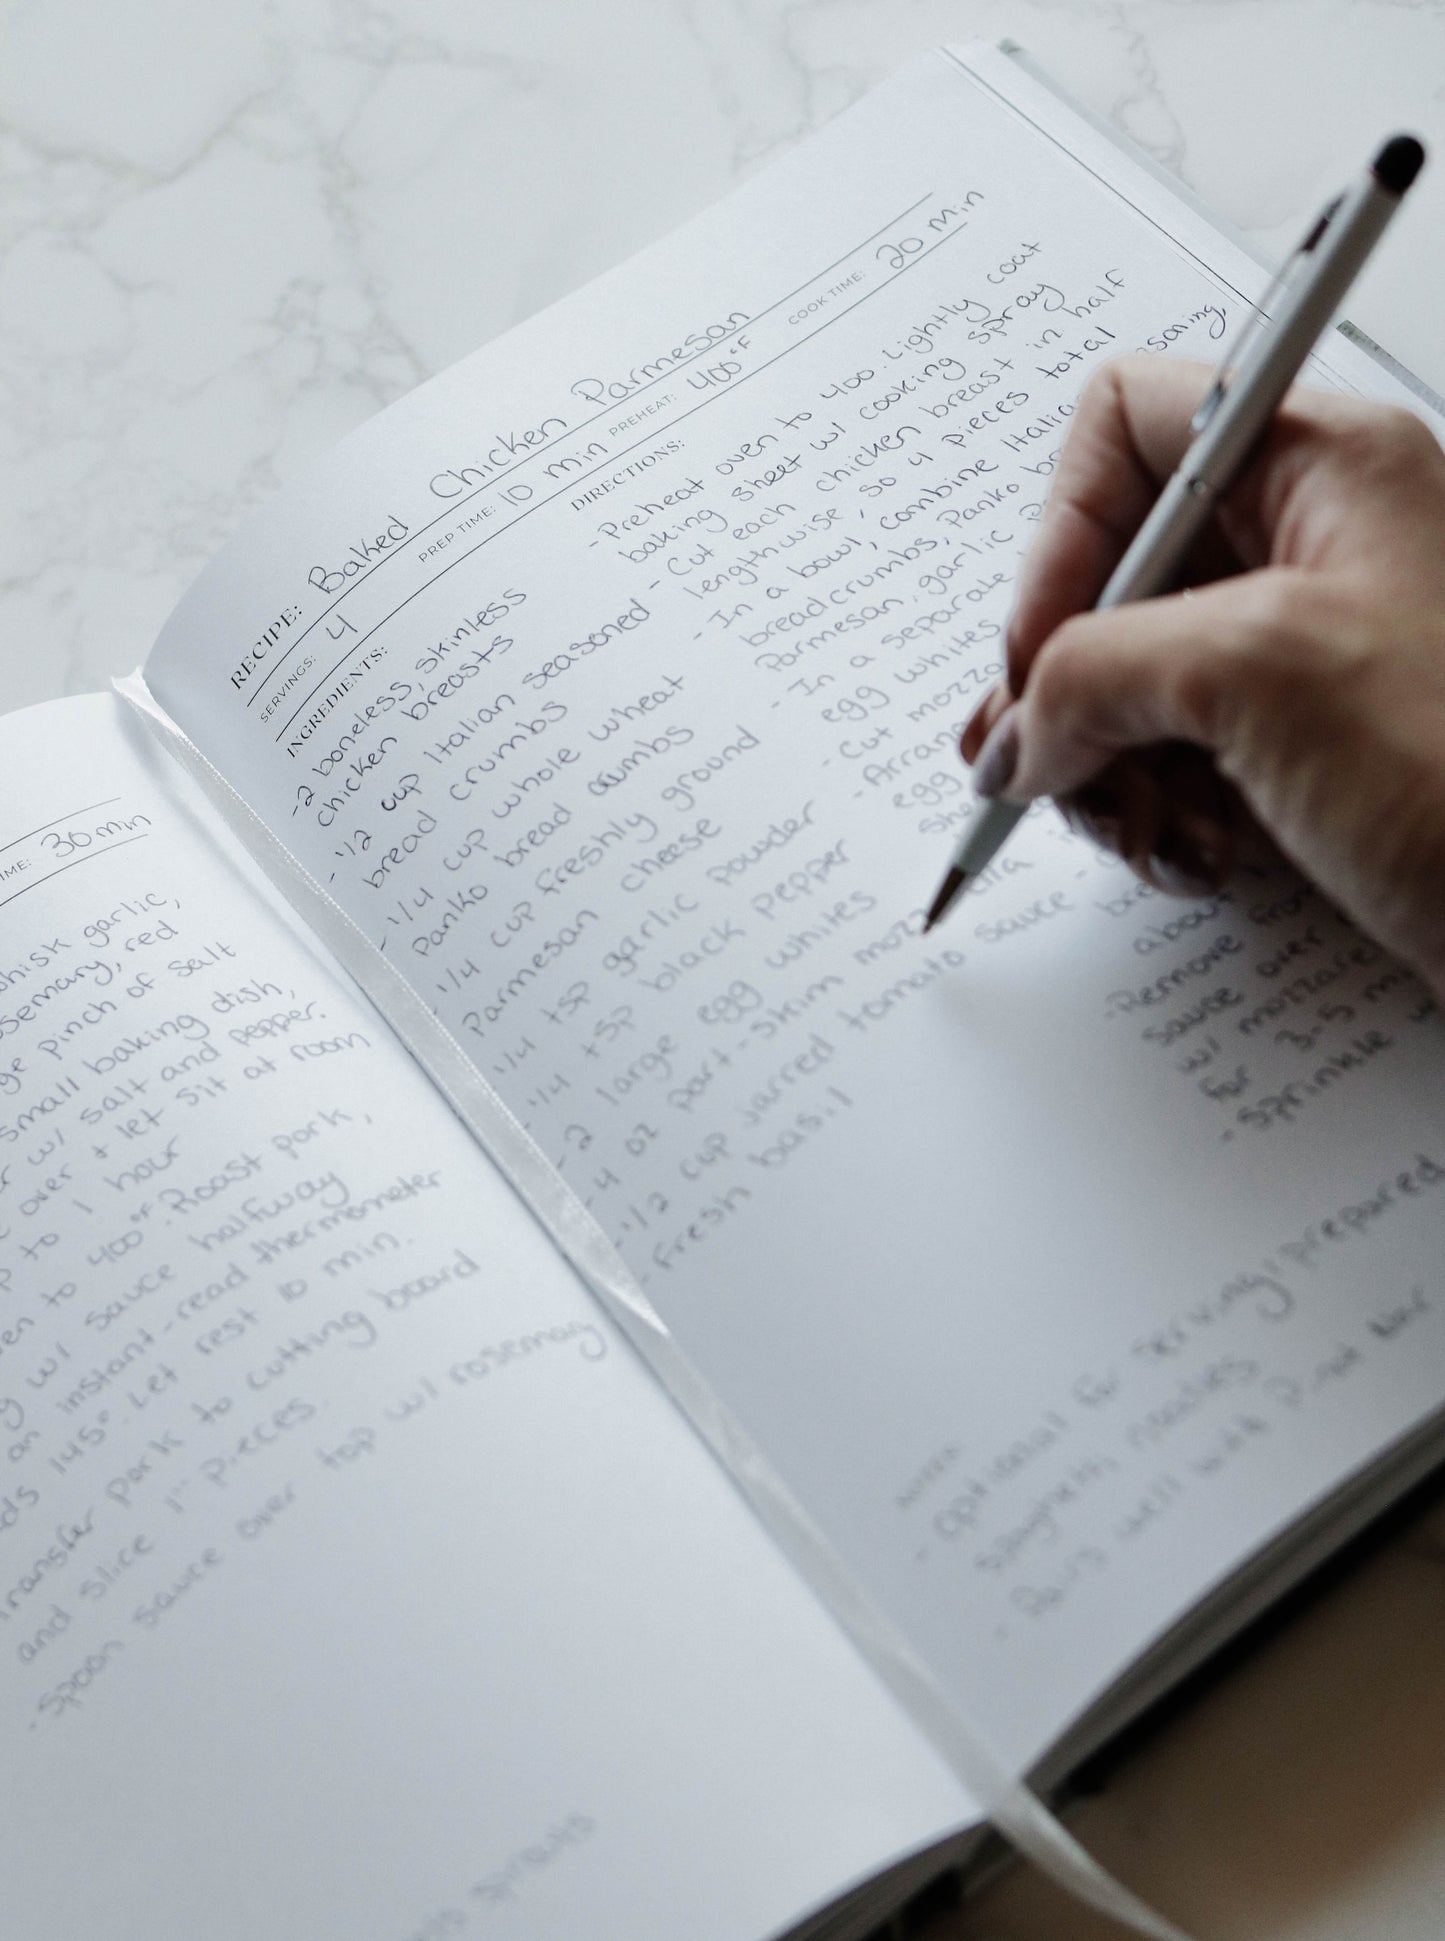 IME: 30 min
whisk garlic,
rosemary, red
pinch of salt
small baking dish,
w/ salt and pepper.
over + let sit at room
to 1 hour
to 400°F. Roast pork,
w/ sauce halfway
an instant-read thermometer
145°. Let rest 10 min.
transfer pork to cutting board
and slice 1" pieces.
-Spoon sauce over top w/ rosemary
sprouts
RECIPE: Baked Chicken Parmesan
SERVINGS: 4 PREP TIME: 10 min PREHEAT: 400°F COOK TIME: 20 min
INGREDIENTS:
-2 boneless, skinless
chicken breasts
-1/2 cup Italian seasoned
bread crumbs
-1/4 cup whole wheat
Panko bread crumbs
-1/4 cup freshly ground
Parmesan cheese
-1/4 tsp garlic powder
-1/4 tsp black pepper
-2 large egg whites
-4 oz part-skim mozz ella
-1/2 cup jarred tomato sauce
-Fresh basil
DIRECTIONS:
-Preheat oven to 400. Lightly coat
baking sheet w/ cooking spray
-Cut each chicken breast in half
lengthwise, so 4 pieces total
-In a bowl, combine Italia soning,
breadcrumbs, Panko
Parmesan, garlic
-In a separate
egg whites
-Cut mozza
-Arrang
egg
she
about
-Remove from
sauce over
w/ mozzarel
for 3-5 m
-Sprinkle w
NOTES:
-Optional for serving: prepared
spaghetti noodles
-Pairs well with Pinot Noir